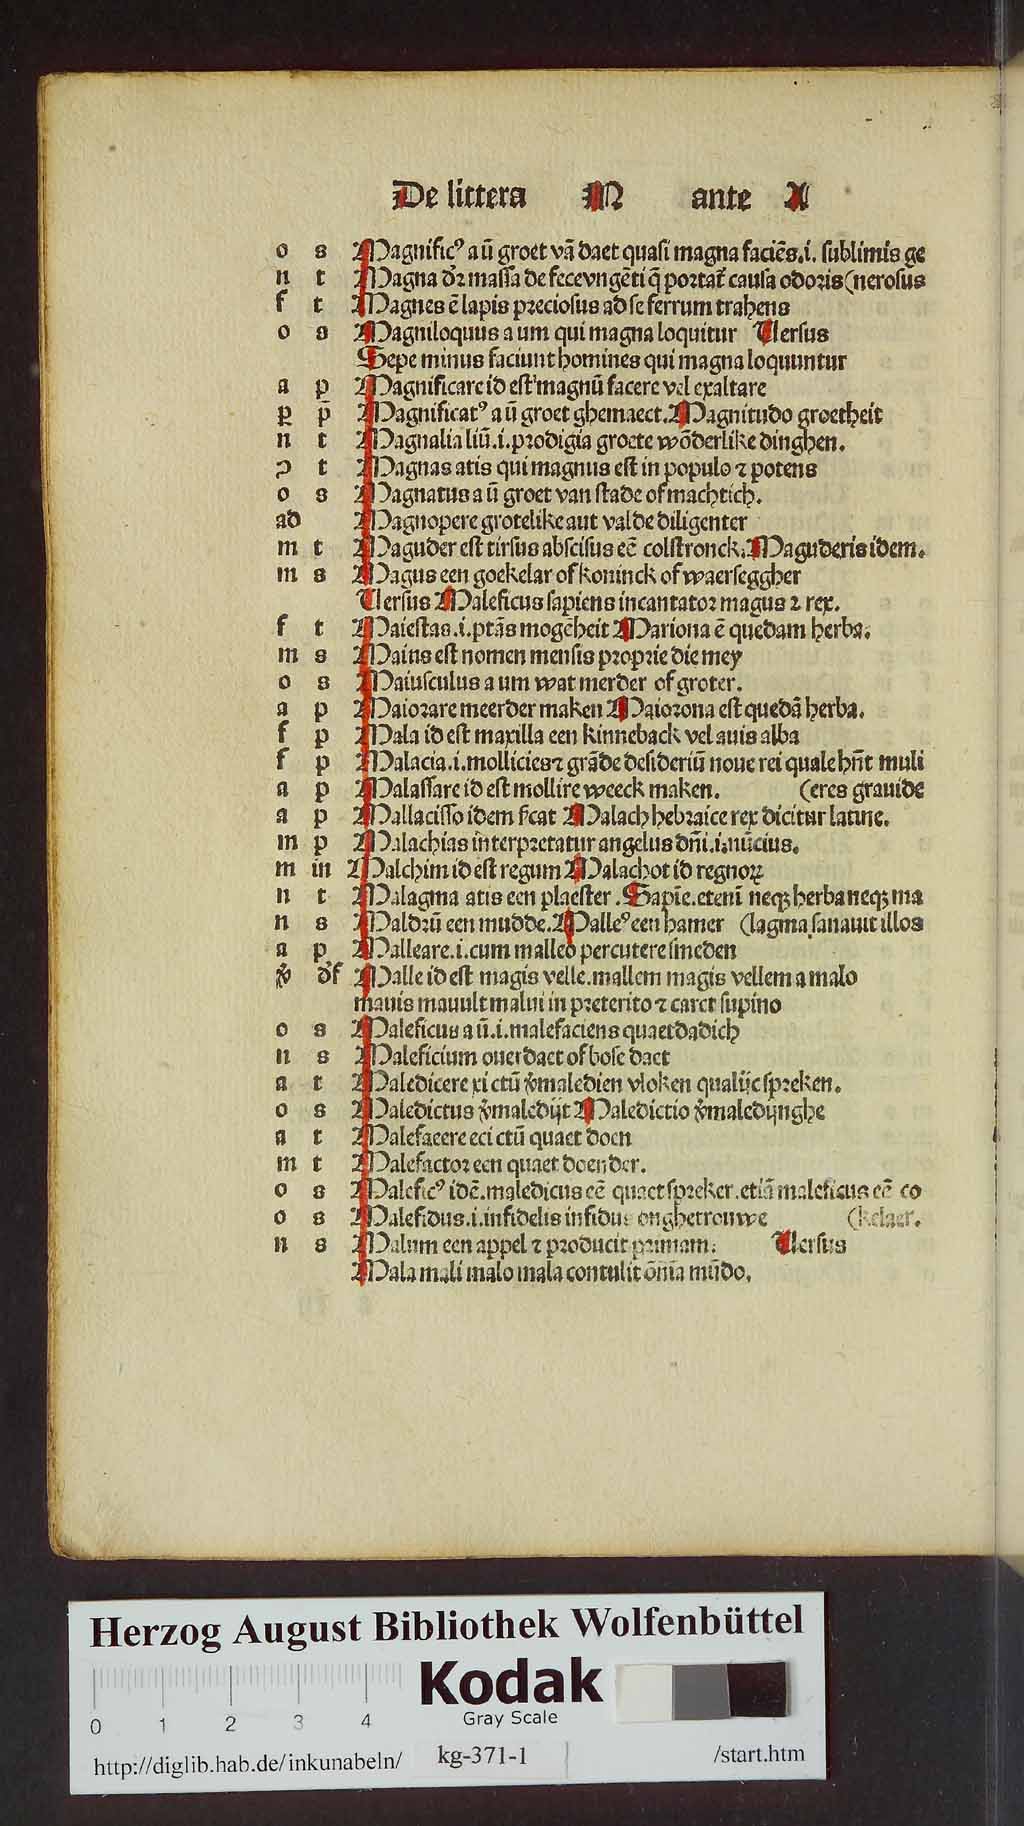 De littera M ante A
o s Magnificꝰ a ū groet vā daet quasi magna faciēs.i. sublimis ge
n t Magna dr̄ massa de fecevngēti q̄ portat̄ causa odoris (nerosus
f t Magnes ē lapis preciosus ad se ferrum trahens
o s Magniloquus a um qui magna loquitur Uersus
Sepe minus faciunt homines qui magna loquuntur
a p Magnificare id est magnū facere vel exaltare
p p̄ Magnificatꝰ a ū groet ghemaect. Magnitudo groetheit
n t Magnalia liū.i.prodigia groete wōderlike dinghen.
ɔ t Magnas atis qui magnus est in populo ⁊ potens
o s Magnatus a ū groet van stade of machtich.
ad Magnopere grotelike aut valde diligenter
m t Maguder est tirsus abscisus eē colstronck. Maguderis idem.
m s Magus een goekelar of koninck of waerseggher
Uersus Maleficus sapiens incantator magus ⁊ rex.
f t Maiestas.i.ptās mogēheit Mariona ē quedam herba.
m s Maius est nomen mensis proprie die mey
o s Maiusculus a um wat merder of groter.
a p Maiorare meerder maken Maiorona est quedā herba.
f p Mala id est maxilla een kinneback vel auis alba
f p Malacia.i.mollicies ⁊ grāde desideriū noue rei quale hn̄t muli
a p Malassare id est mollire weeck maken. (eres grauide
a p Mallacisso idem fcat Malach hebraice rex dicitur latine.
m p Malachias interpretatur angelus dn̄i.i.nūcius.
m in Malchim id est regum Malachot id regnoꝝ
n t Malagma atis een plaester. Sapīe. etenī neqꝫ herba neqꝫ ma
n s Maldrū een mudde. Malleꝰ een hamer (lagma sanauit illos
a p Malleare.i.cum malleo percutere smeden
v̄ df Malle id est magis velle. mallem magis vellem a malo
mauis mauult malui in preterito ⁊ caret supino
o s Maleficus a ū.i.malefaciens quaetdadich
n s Maleficium ouerdaet of bose daet
a t Maledicere xi ctū v̄maledien vloken qualijc spreken.
o s Maledictus v̄maledijt Maledictio v̄maledijnghe
a t Malefacere eci ctū quaet doen
m t Malefactor een quaet doender.
o s Maleficꝰ idē. maledicus eē quaet spreker. etiā maleficus eē co
o s Malefidus.i.infidelis infidus onghetrouwe (kelaer.
n s Malum een appel ⁊ producit primam. Uersus
Mala mali malo mala contulit ōmīa mūdo.
Herzog August Bibliothek Wolfenbüttel
Kodak
Gray Scale
0 1 2 3 4
http://diglib.hab.de/inkunabeln/ kg-371-1 /start.htm